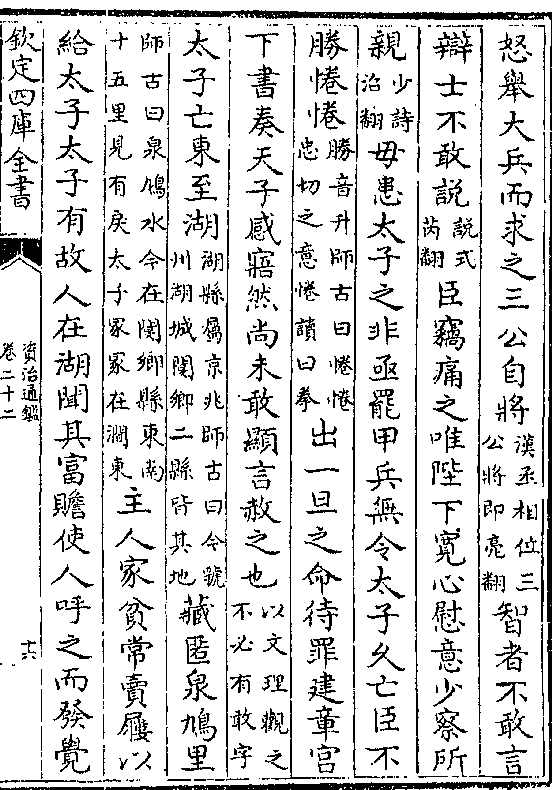 怒舉大兵而求之三公自將漢丞相位三公將即亮翻智者不敢言
辯士不敢説説式芮翻臣竊痛之唯陛下寛心慰意少察所
親少詩沼翻毋患太子之非亟罷甲兵無令太子久亡臣不
勝惓惓勝音升師古曰惓惓忠切之意惓讀曰拳出一旦之命待罪建章宫
下書奏天子感寤然尚未敢顯言赦之也以文理觀之不必有敢字
太子亡東至湖湖縣屬京兆師古曰今虢州湖城閿鄉二縣皆其地藏匿泉鳩里
師古曰泉鳩水今在閿鄉縣東南十五里見有戾太子冢冢在澗東主人家貧常賣屨以
給太子太子有故人在湖聞其富贍使人呼之而發覺
欽定四庫全書
資治通鑑
卷二十二
十六